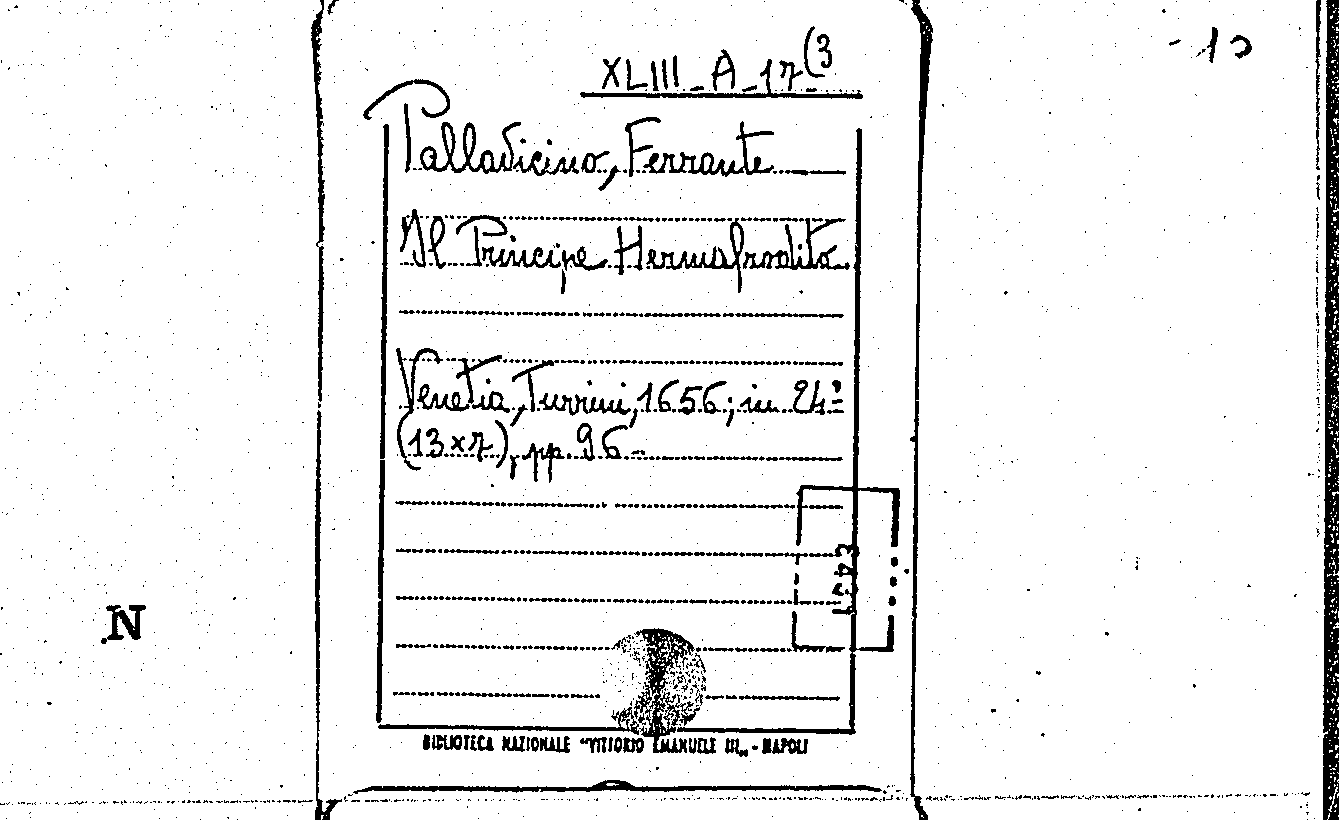 XLIII_A_17(3
Pallavicino, Ferrante
Il Principe Hermafrodito.
Venetia, Turrini, 1656; in 24º
(13x7), pp. 96-
N
BIBLIOTECA NAZIONALE "VITTORIO EMANUELE III„ - NAPOLI